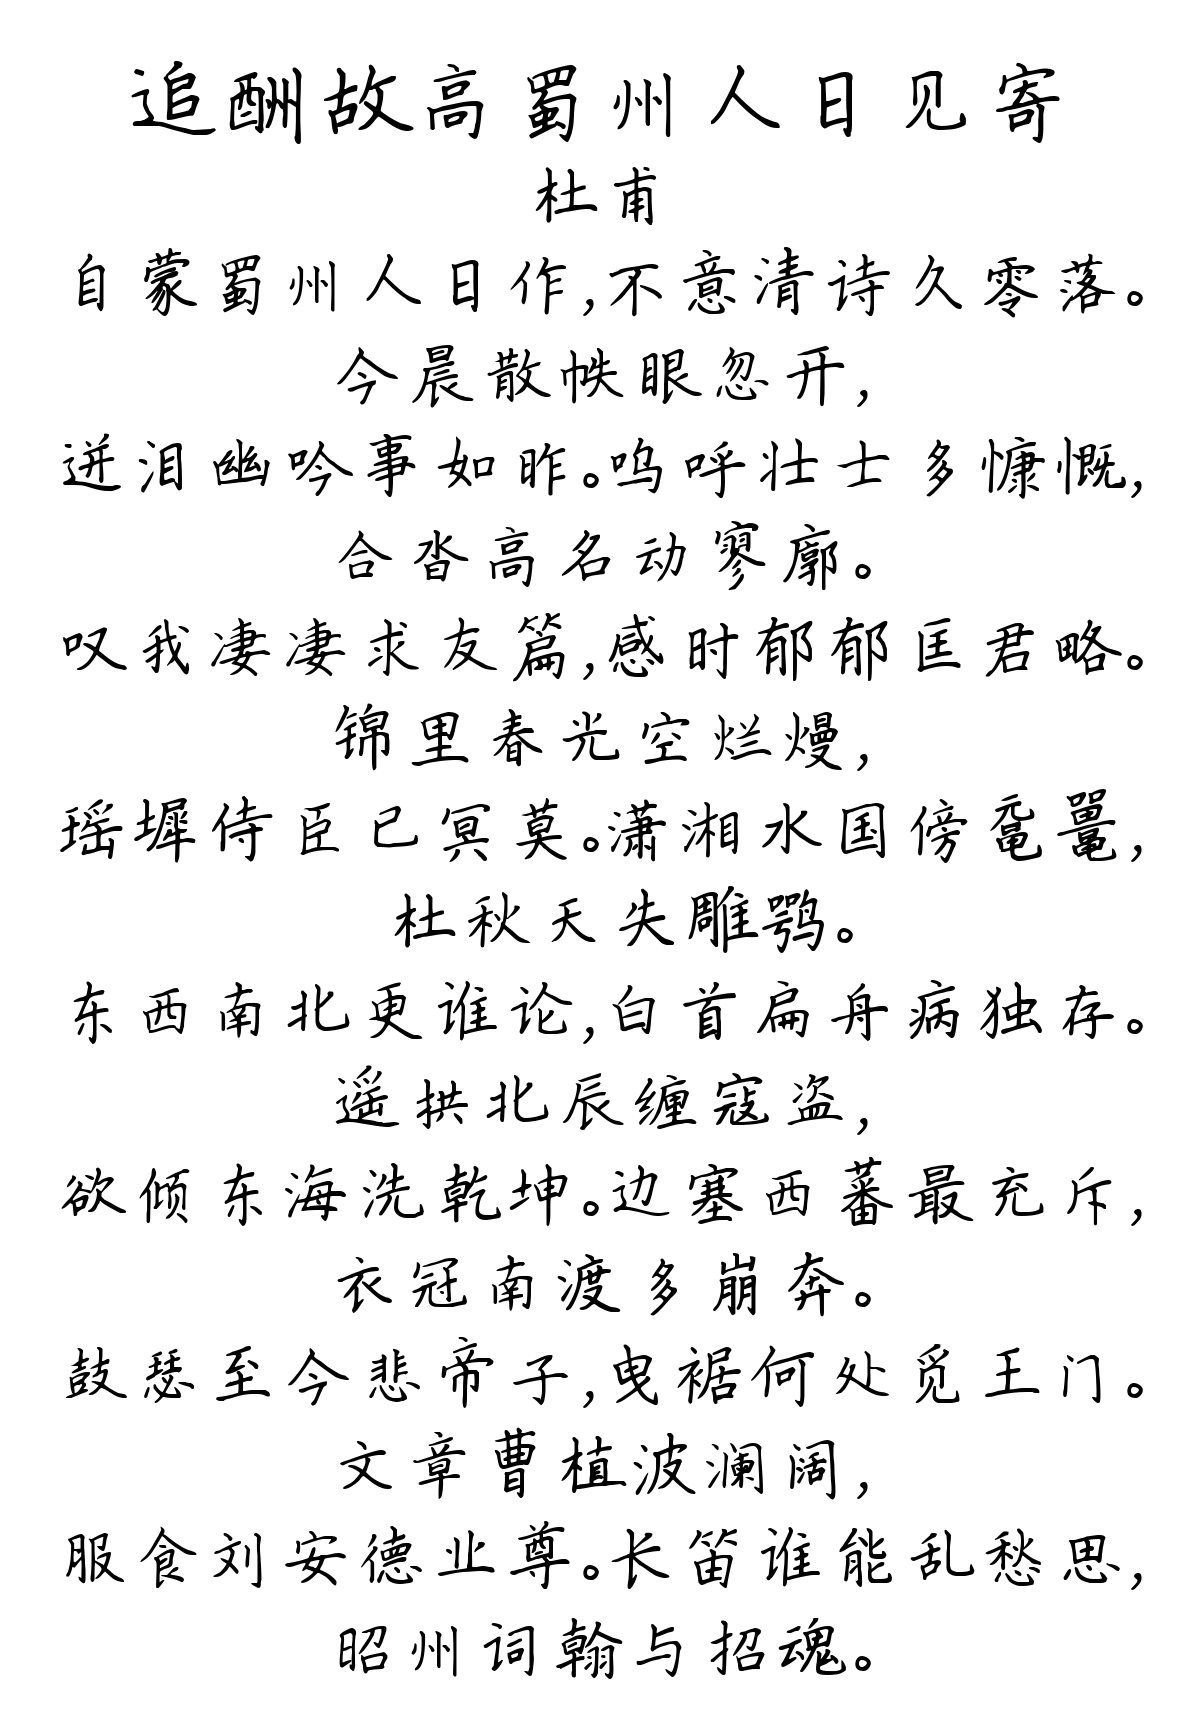 追酬故高蜀州人日见寄
杜甫
自蒙蜀州人日作,不意清诗久零落。
今晨散帙眼忽开,
迸泪幽吟事如昨。呜呼壮士多慷慨,
合沓高名动寥廓。
叹我凄凄求友篇,感时郁郁匡君略。
锦里春光空烂熳,
瑶墀侍臣已冥莫。潇湘水国傍鼋鼍,
杜秋天失雕鹗。
东西南北更谁论,白首扁舟病独存。
遥拱北辰缠寇盗,
欲倾东海洗乾坤。边塞西蕃最充斥,
衣冠南渡多崩奔。
鼓瑟至今悲帝子,曳裾何处觅王门。
文章曹植波澜阔,
服食刘安德业尊。长笛谁能乱愁思,
昭州词翰与招魂。